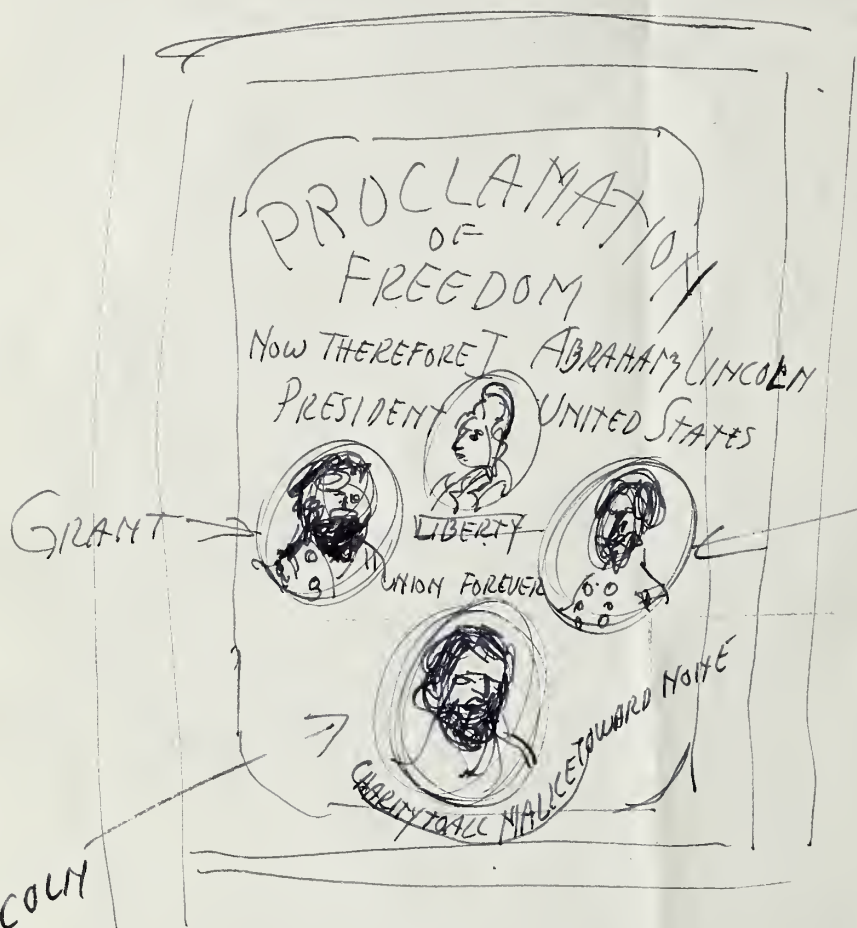 PROCLAMATION
OF
FREEDOM
NOW THEREFORE I ABRAHAM LINCOLN
PRESIDENT UNITED STATES
GRANT
LIBERTY
UNION FOREVER
CHARITY TO ALL MALICE TOWARD NONE
COLN